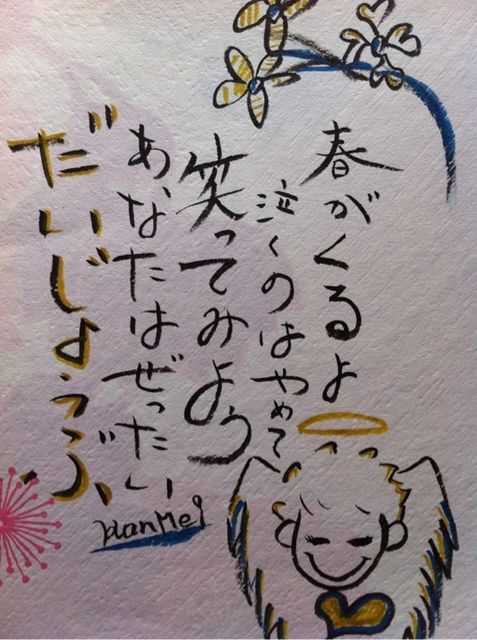 春がくるよ
泣くのはやめて
笑ってみよう
あなたはぜったい
だいじょうぶ